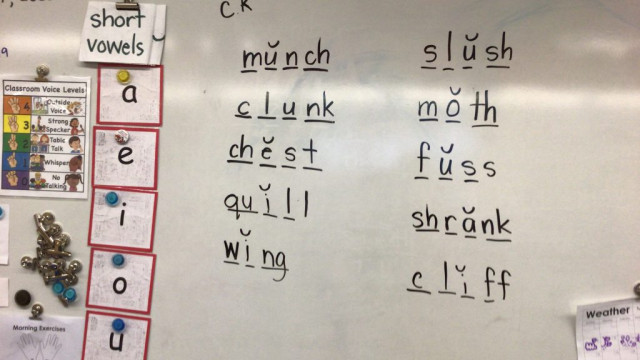 ck
short
vowels
Classroom Voice Levels
4 Outside Voice
3 Strong Speaker
2 Table Talk
1 Whisper
0 No Talking
a
e
i
o
u
mŭnch
clŭnk
chĕst
quĭll
wĭng
slŭsh
mŏth
fŭss
shrănk
clĭff
Morning Exercises
Weather